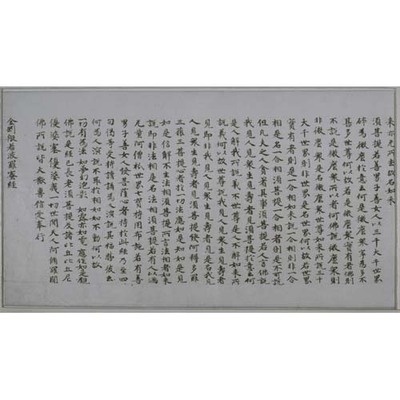 来亦无所去故名如来
須菩提若善男子善女人以三千大千世界
碎為微塵於意云何是微塵衆寧為多不
甚多世尊何以故若是微塵衆實有者佛則
不說是微塵衆所以者何佛說微塵衆則
非微塵衆是名微塵衆世尊如来所說三千
大千世界則非世界是名世界何以故若世界
實有者則是一合相如来說一合相則非一合
相是名一合相須菩提一合相者則是不可說
但凡夫之人貪著其事須菩提若人言佛說
我見人見衆生見壽者見須菩提於意云何
是人解我所說義不世尊是人不解如来所
說義何以故世尊說我見人見衆生見壽者
見即非我見人見衆生見壽者見是名我見
人見衆生見壽者見須菩提發阿耨多羅
三藐三菩提心者於一切法應如是知如是見
如是信解不生法相須菩提所言法相者如来
說即非法相是名法相須菩提若有人以滿
无量阿僧祇世界七寶持用布施若有善
男子善女人發菩薩心者持於此經乃至四
句偈等受持讀誦為人演說其福勝彼云
何為人演說不取於相如如不動何以故
一切有為法如夢幻泡影如露亦如電應作如是觀
佛說是經已長老須菩提及諸比丘比丘尼
優婆塞優婆夷一切世間天人阿修羅聞
佛所說皆大歡喜信受奉行
金剛般若波羅蜜經